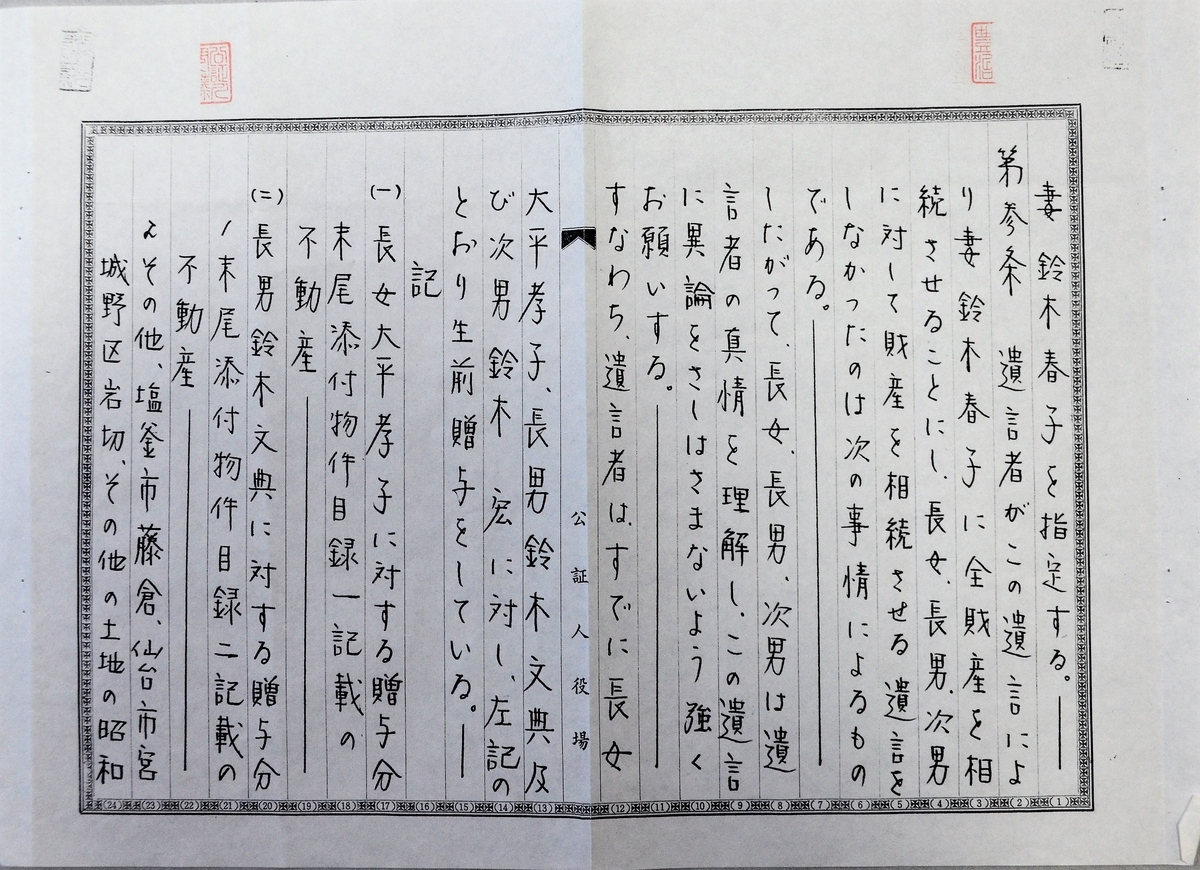 妻鈴木春子を指定する。
第参条　遺言者がこの遺言によ
り妻鈴木春子に全財産を相
続させることにし、長女、長男、次男
に対して財産を相続させる遺言を
しなかったのは次の事情によるもの
である。
したがって、長女、長男、次男は遺
言者の真情を理解し、この遺言
に異論をさしはさまないよう強く
お願いする。
すなわち、遺言者は、すでに長女
公証人役場
大平孝子、長男鈴木文典及
び次男鈴木宏に対し、左記の
とおり生前贈与をしている。
記
(一)長女大平孝子に対する贈与分
末尾添付物件目録一記載の
不動産
(二)長男鈴木文典に対する贈与分
1末尾添付物件目録二記載の
不動産
2その他、塩釜市藤倉、仙台市宮
城野区岩切、その他の土地の昭和
(24) (23) (22) (21) (20) (19) (18) (17) (16) (15) (14) (13) (12) (11) (10) (9) (8) (7) (6) (5) (4) (3) (2) (1)